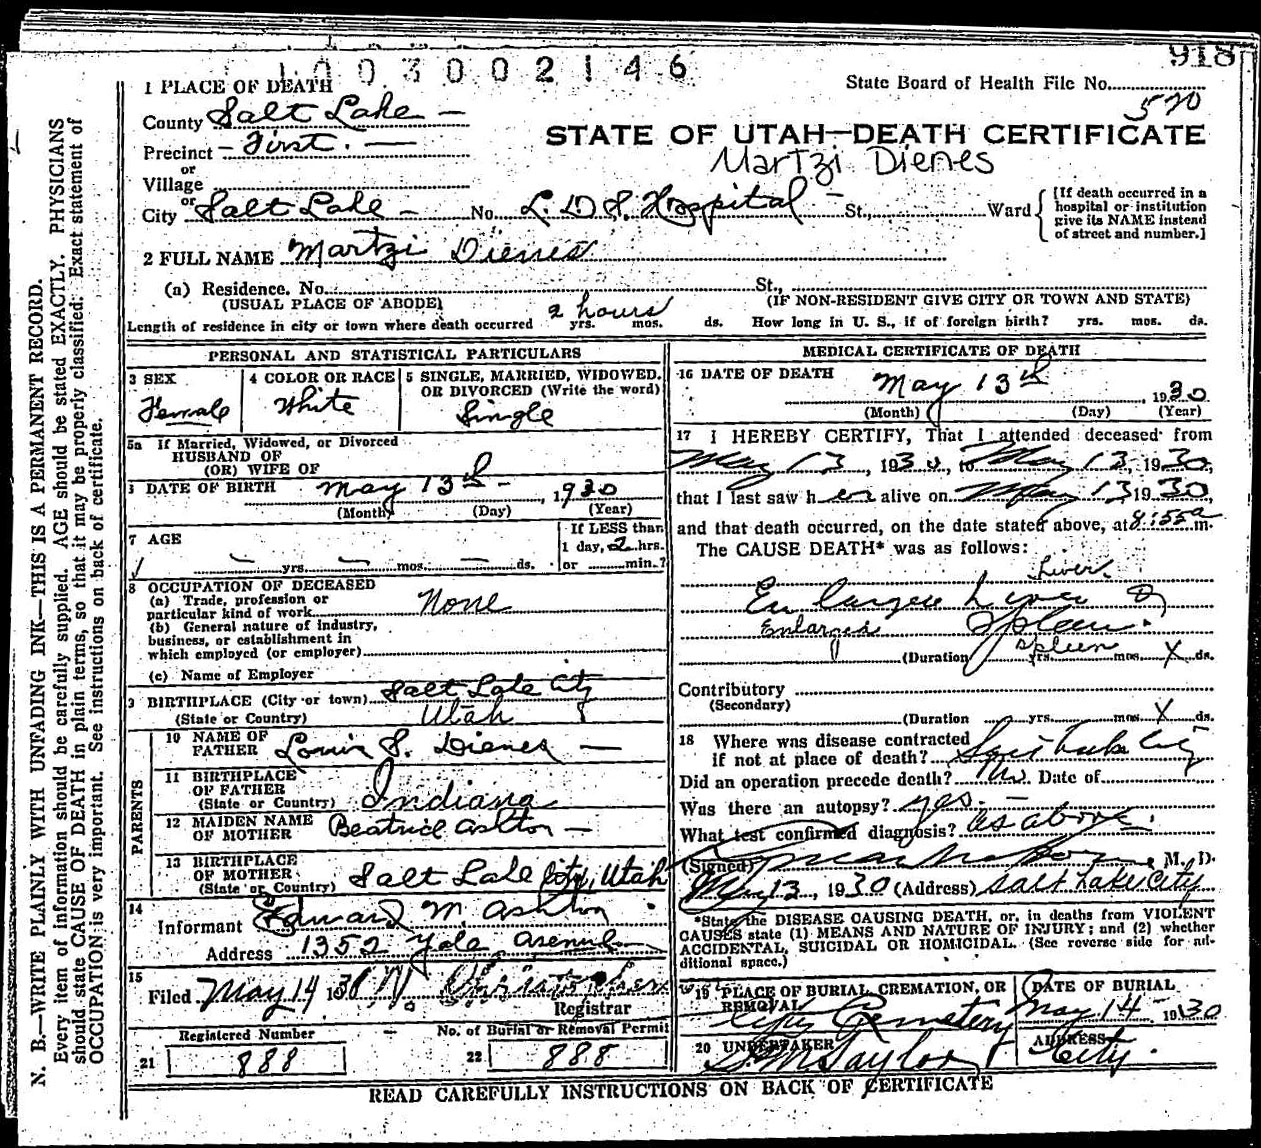 918
1003002146
1 PLACE OF DEATH
State Board of Health File No.
570
County Salt Lake —
STATE OF UTAH—DEATH CERTIFICATE
Precinct – First. —
Martzi Dienes
or
Village
or
City Salt Lake – No. L.D.S. Hospital – St., Ward
[If death occurred in a
hospital or institution
give its NAME instead
of street and number.]
2 FULL NAME Martzi Dienes
(a) Residence. No. St.,
(USUAL PLACE OF ABODE) (IF NON-RESIDENT GIVE CITY OR TOWN AND STATE)
2 hours
Length of residence in city or town where death occurred yrs. mos. ds. How long in U. S., if of foreign birth? yrs. mos. ds.
PERSONAL AND STATISTICAL PARTICULARS
3 SEX
Female
4 COLOR OR RACE
White
5 SINGLE, MARRIED, WIDOWED,
OR DIVORCED (Write the word)
Single
5a If Married, Widowed, or Divorced
HUSBAND OF
(OR) WIFE OF
DATE OF BIRTH May 13th – , 1930
(Month) (Day) (Year)
7 AGE
yrs. mos. ds.
If LESS than
1 day, 2 hrs.
or min.?
8 OCCUPATION OF DECEASED
(a) Trade, profession or
particular kind of work None
(b) General nature of industry,
business, or establishment in
which employed (or employer)
(c) Name of Employer
9 BIRTHPLACE (City or town) Salt Lake City
(State or Country) Utah
PARENTS
10 NAME OF
FATHER Louis S. Dienes —
11 BIRTHPLACE
OF FATHER
(State or Country) Indiana
12 MAIDEN NAME
OF MOTHER Beatrice Ashton —
13 BIRTHPLACE
OF MOTHER
(State or Country) Salt Lake City, Utah
14
Informant Edward M. Ashton
Address 1352 Yale Avenue
15
Filed May 14 1930 W. Christopherson
Registrar
Registered Number
21 888
No. of Burial or Removal Permit
22 888
MEDICAL CERTIFICATE OF DEATH
16 DATE OF DEATH May 13th , 1930
(Month) (Day) (Year)
17 I HEREBY CERTIFY, That I attended deceased from
May 13, 1930, to May 13, 1930,
that I last saw her alive on May 13 1930,
and that death occurred, on the date stated above, at 4:55 a m.
The CAUSE DEATH* was as follows:
Liver
Enlarged Liver &
Enlarged Spleen.
Spleen
(Duration yrs. mos. X ds.
Contributory
(Secondary)
(Duration yrs. mos. X ds.
18 Where was disease contracted
if not at place of death? Salt Lake City
Did an operation precede death? No. Date of
Was there an autopsy? yes. —
What test confirmed diagnosis? As above.
(Signed) , M. D.
May 13, 1930 (Address) Salt Lake City
*State the DISEASE CAUSING DEATH, or, in deaths from VIOLENT
CAUSES state (1) MEANS AND NATURE OF INJURY; and (2) whether
ACCIDENTAL, SUICIDAL OR HOMICIDAL. (See reverse side for ad-
ditional space.)
19 PLACE OF BURIAL, CREMATION, OR
REMOVAL
City Cemetery
DATE OF BURIAL
May 14 – 1930
20 UNDERTAKER
S.M. Taylor
ADDRESS
City.
READ CAREFULLY INSTRUCTIONS ON BACK OF CERTIFICATE
N. B.—WRITE PLAINLY WITH UNFADING INK—THIS IS A PERMANENT RECORD.
Every item of information should be carefully supplied. AGE should be stated EXACTLY. PHYSICIANS
should state CAUSE OF DEATH in plain terms, so that it may be properly classified. Exact statement of
OCCUPATION is very important. See instructions on back of certificate.